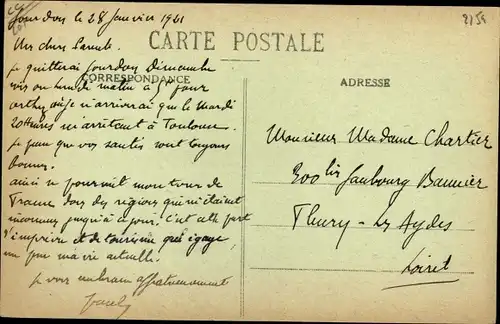 Gourdon le 28 Janvier 1921
2158
Mes chers Parents.
CARTE POSTALE
Je quitterai Gourdon Dimanche
CORRESPONDANCE
ADRESSE
ou lundi matin à 5h pour
où je n'arriverai que le Mardi
20 heures m'arrêtant à Toulouse.
Je pense que vos santés sont toujours
bonnes.
ainsi se poursuit mon tour de
France dans des régions qui m'étaient
inconnues jusqu'à ce jour. C'est cette part
d'imprévu et de tourisme qui égaye
un peu ma vie actuelle.
Je vous embrasse affectueusement
Monsieur Madame Chartier
300 bis faubourg Bannier
Fleury-les Aydes
Loiret